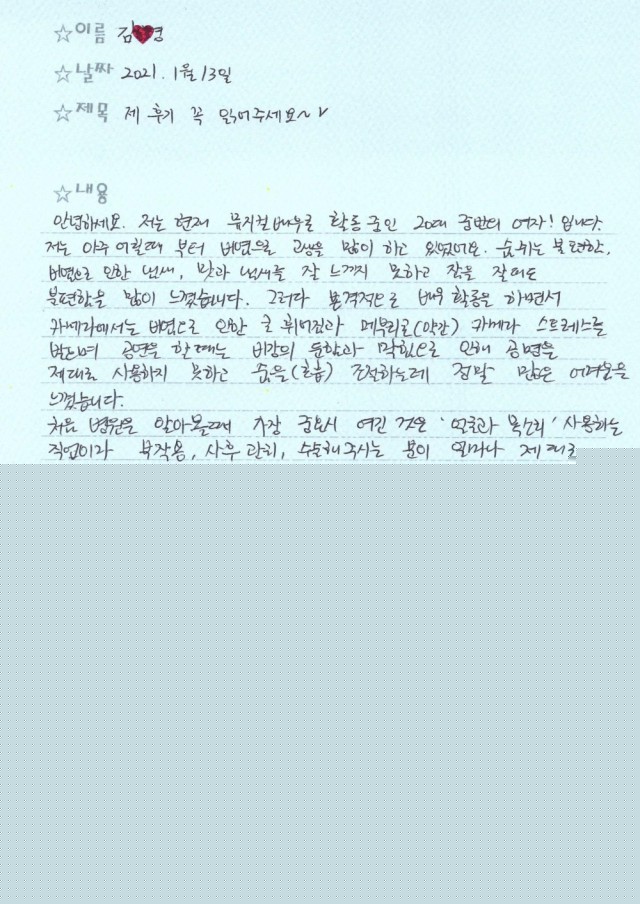 ☆이름 김♥영
☆날짜 2021. 1월 13일
☆제목 제 후기 꼭 읽어주세요~♥
☆내용
안녕하세요. 저는 현재 뮤지컬배우로 활동 중인 20대 중반의 여자! 입니다.
저는 아주 어릴때 부터 비염으로 고생을 많이 하고 있었어요. 숨쉬는 불편함,
비염으로 인한 냄새, 맛과 냄새를 잘 느끼지 못하고 잠을 잘때도
불편함을 많이 느꼈습니다. 그러다 본격적으로 배우 활동을 하면서
카메라에서는 비염으로 인한 코 휘어짐과 매부리코(약간) 카메라 스트레스를
받으며 공연을 할때는 비강의 답답함과 막힘으로 인해 공명을
제대로 사용하지 못하고 숨을(호흡) 조절하는데 정말 많은 어려움을
느꼈습니다.
처음 병원을 알아볼때 가장 중요시 여긴 것은 '얼굴과 목소리' 사용하는
직업이라 부작용, 사후 관리, 수술해주시는 분이 얼마나 제대로